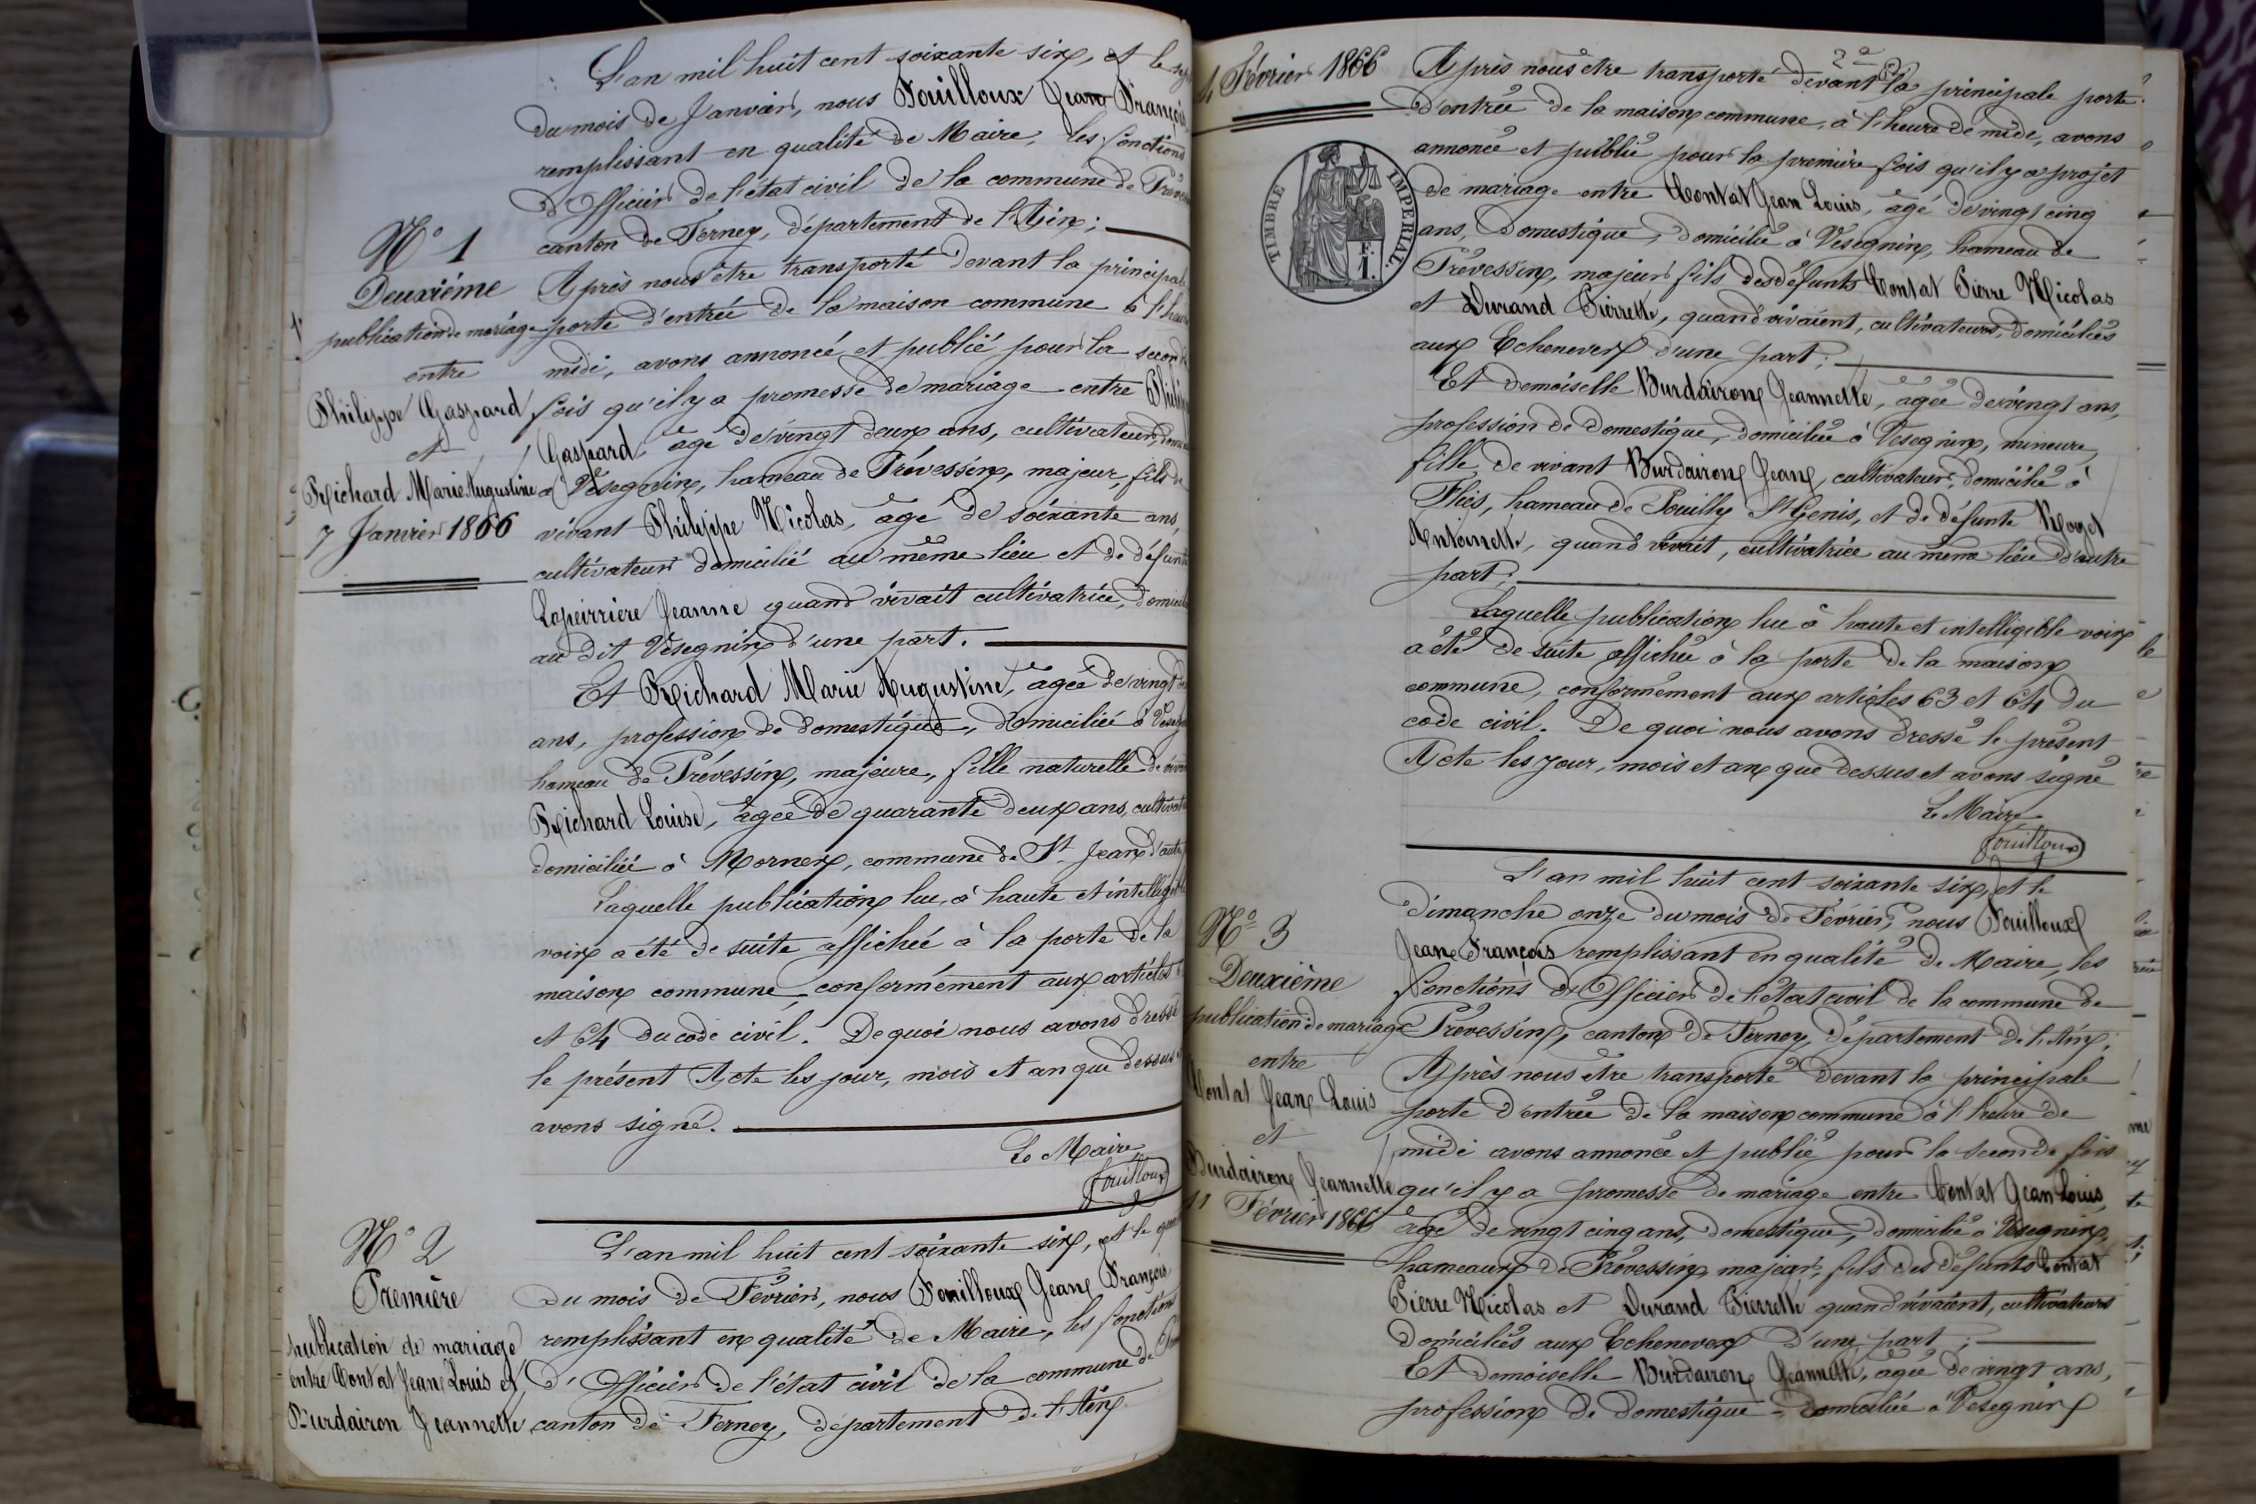 L'an mil huit cent soixante six, et le
du mois de Janvier, nous Fouilloux Jean François
remplissant en qualité de Maire, les fonctions
d'Officier de l'état civil de la commune de
canton de Ferney, département de l'Ain;
N° 1
Deuxième
publication de mariage
entre
Philippe Gaspard
et
Richard Marie Augustine
7 Janvier 1866
Après nous être transporté devant la principale
porte d'entrée de la maison commune à
midi, avons annoncé et publié pour la
fois qu'il y a promesse de mariage entre
Gaspard âgé de vingt deux ans, cultivateur
à Vésegnin, hameau de Prévessin, majeur, fils de
vivant Philippe Nicolas, âgé de soixante ans,
cultivateur domicilié au même lieu et de
Lapeirriere Jeanne quand vivait cultivatrice,
au dit Vésegnin d'une part.
Et Richard Marie Augustine, âgée de vingt
ans, profession de domestique, domiciliée à
hameau de Prévessin, majeure, fille naturelle de
Richard Louise, âgée de quarante deux ans,
domiciliée à Mornex, commune de St Jean
Laquelle publication lue, à haute et
voix a été de suite affichée à la porte de la
maison commune, conformément aux articles
et 64 du code civil. De quoi nous avons dressé
le présent Acte les jour, mois et an que dessus
avons signé.
Le Maire
Fouilloux
N° 2
Première
publication de mariage
entre Contat Jean Louis et
Burdairon Jeannette
L'an mil huit cent soixante six, et le
du mois de Février, nous Fouilloux Jean François
remplissant en qualité de Maire, les fonctions
d'Officier de l'état civil de la commune de
canton de Ferney, département de l'Ain
4 Février 1866
2e
TIMBRE IMPERIAL.
F.
1.
Après nous être transporté devant la principale porte
d'entrée de la maison commune, à l'heure de midi, avons
annoncé et publié pour la première fois qu'il y a projet
de mariage entre Contat Jean Louis, âgé de vingt cinq
ans, Domestique, domicilié à Vesegnin, hameau de
Prévessin, majeur fils des défunts Contat Pierre Nicolas
et Durand Pierrette, quand vivaient, cultivateurs, domiciliés
aux Echenevex d'une part;
Et demoiselle Burdairon Jeannette, âgée de vingt ans,
profession de domestique, domiciliée à Vesegnin, mineure,
fille de vivant Burdairon Jean, cultivateur, domicilié à
Flies, hameau de Pouilly St Genis, et de défunte Roget
Antoinette, quand vivait, cultivatrice au même lieu d'autre
part;
Laquelle publication lue à haute et intelligible voix
a été de suite affichée à la porte de la maison
commune, conformément aux articles 63 et 64 du
code civil. De quoi nous avons dressé le présent
Acte les jour, mois et an que dessus et avons signé
Le Maire
Fouilloux
N° 3
Deuxième
publication de mariage
entre
Contat Jean Louis
et
Burdairon Jeannette
11 Février 1866
L'an mil huit cent soixante six, et le
dimanche onze du mois de Février, nous Fouilloux
Jean François remplissant en qualité de Maire, les
fonctions d'Officier de l'état civil de la commune de
Prévessin, canton de Ferney, département de l'Ain,
Après nous être transporté devant la principale
porte d'entrée de la maison commune à l'heure de
midi avons annoncé et publié pour la seconde fois
qu'il y a promesse de mariage entre Contat Jean Louis,
âgé de vingt cinq ans, domestique, domicilié à Vesegnin,
hameaux de Prévessin, majeur, fils des défunts Contat
Pierre Nicolas et Durand Pierrette quand vivaient, cultivateurs
domiciliés aux Echenevex d'une part;
Et demoiselle Burdairon Jeannette, âgée de vingt ans,
profession de domestique - domiciliée à Vesegnin